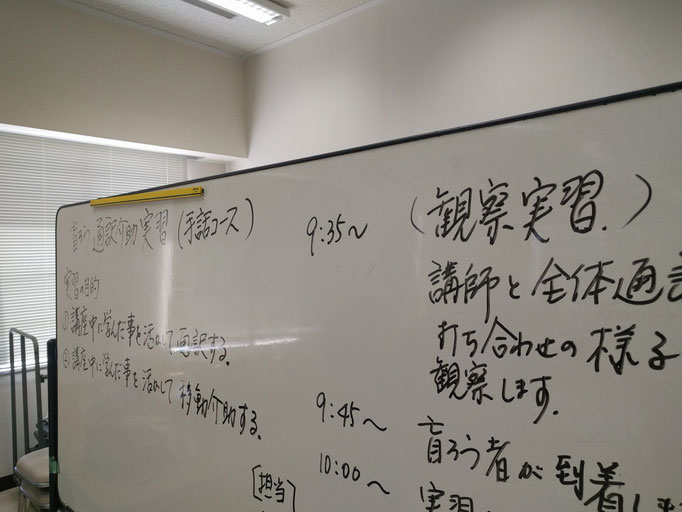 盲ろう通訳介助実習(手話コース)
実習の目的
①講座中に学んだ事を活かして通訳する。
②講座中に学んだ事を活かして移動介助する。
[担当]
9:35~
(観察実習.)
講師と全体通訳
打ち合わせの様子
観察します.
9:45~
盲ろう者が到着しま
10:00~
実習